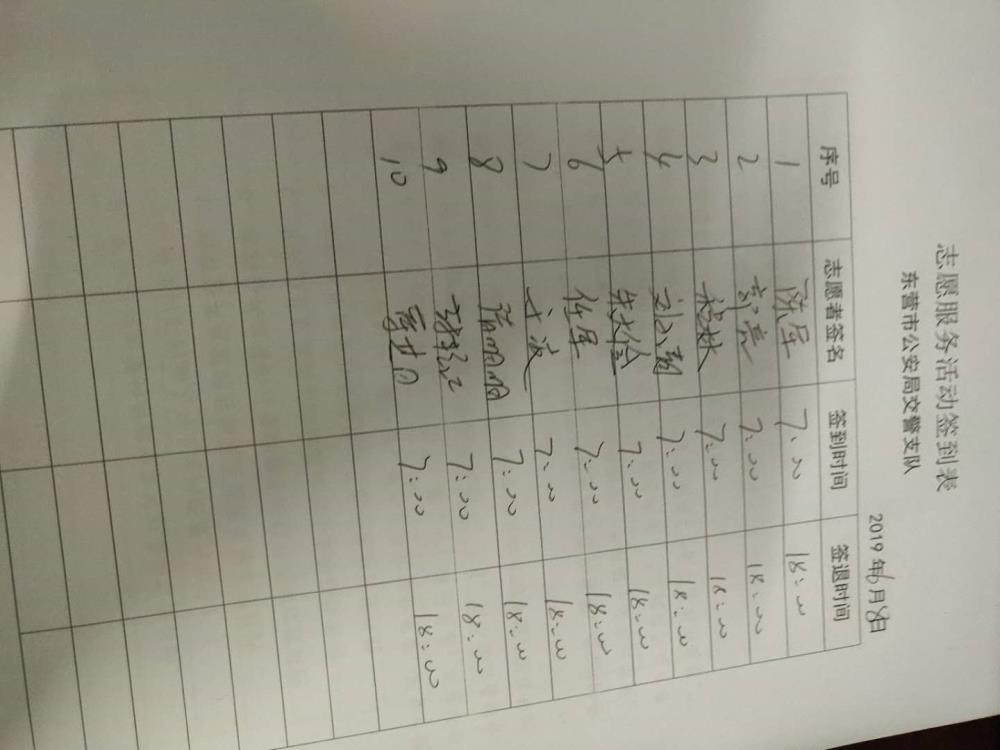 志愿服务活动签到表
东营市公安局交警支队
2019年6月8日
序号 志愿者签名 签到时间 签退时间
1 陈军 7:00 18:00
2 郭亮 7:00 18:00
3 7:00 18:00
4 7:00 18:00
5 7:00 18:00
6 任军 7:00 18:00
7 7:00 18:00
8 7:00 18:00
9 7:00 18:00
10 7:00 18:00